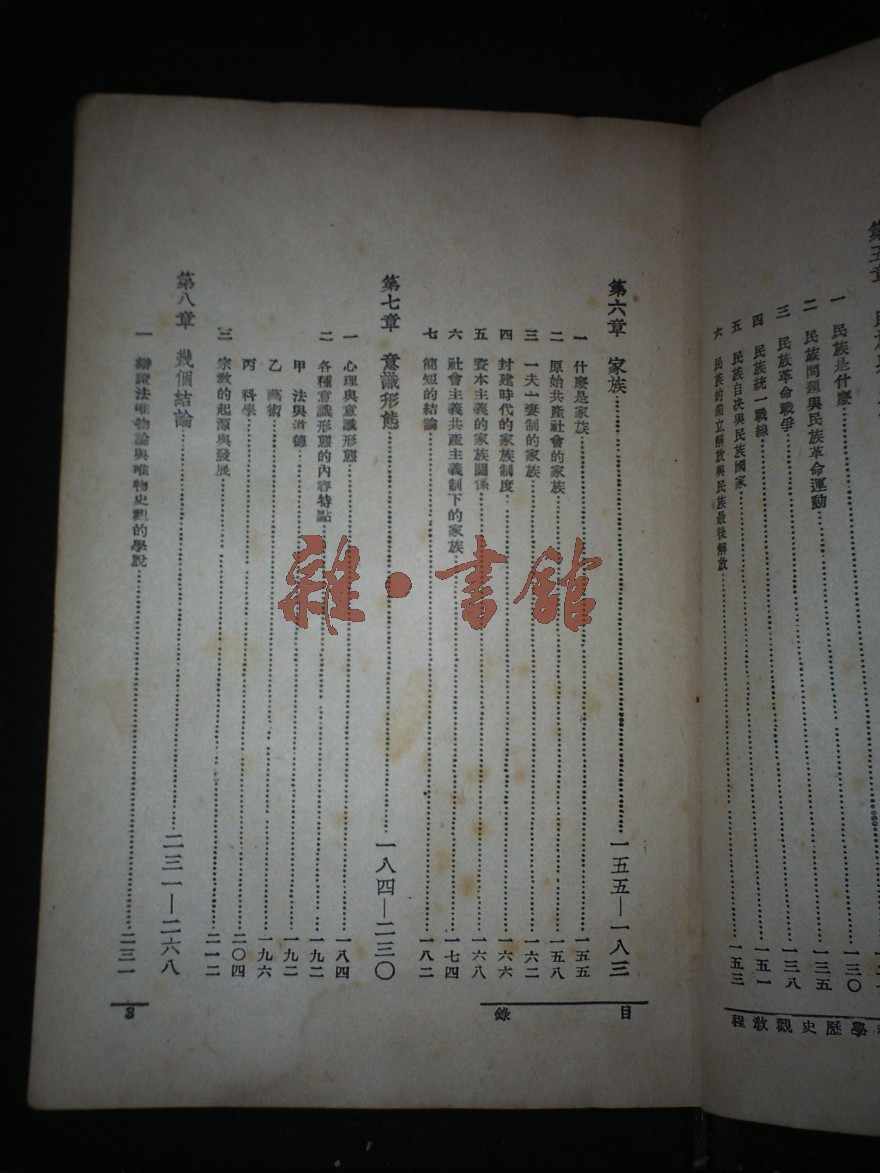 一 民族是什麼 一三〇
二 民族問題與民族革命運動 一三五
三 民族革命戰爭 一三八
四 民族統一戰線 一五一
五 民族自決與民族國家
六 民族的獨立解放與民族最後解放 一五三
學歷史觀教程
第六章 家族 一五五—一八三
一 什麼是家族 一五五
二 原始共產社會的家族 一五八
三 一夫一妻制的家族 一六二
四 封建時代的家族制度 一六六
五 資本主義的家族關係 一六八
六 社會主義共產主義制下的家族 一七四
七 簡短的結論 一八二
第七章 意識形態 一八四—二三〇
一 心理與意識形態 一八四
二 各種意識形態的內容特點 一九二
甲 法與道德 一九二
乙 藝術 一九六
丙 科學 二〇四
三 宗教的起源與發展 二一二
第八章 幾個結論 二三一—二六八
一 辯證法唯物論與唯物史觀的學說 二三一
目錄
3
雜·書館